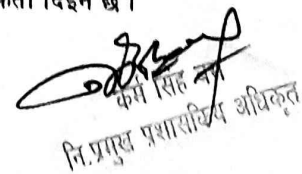 दिइने छ।
कर्म सिंह
नि.प्रमुख प्रशासकिय अधिकृत